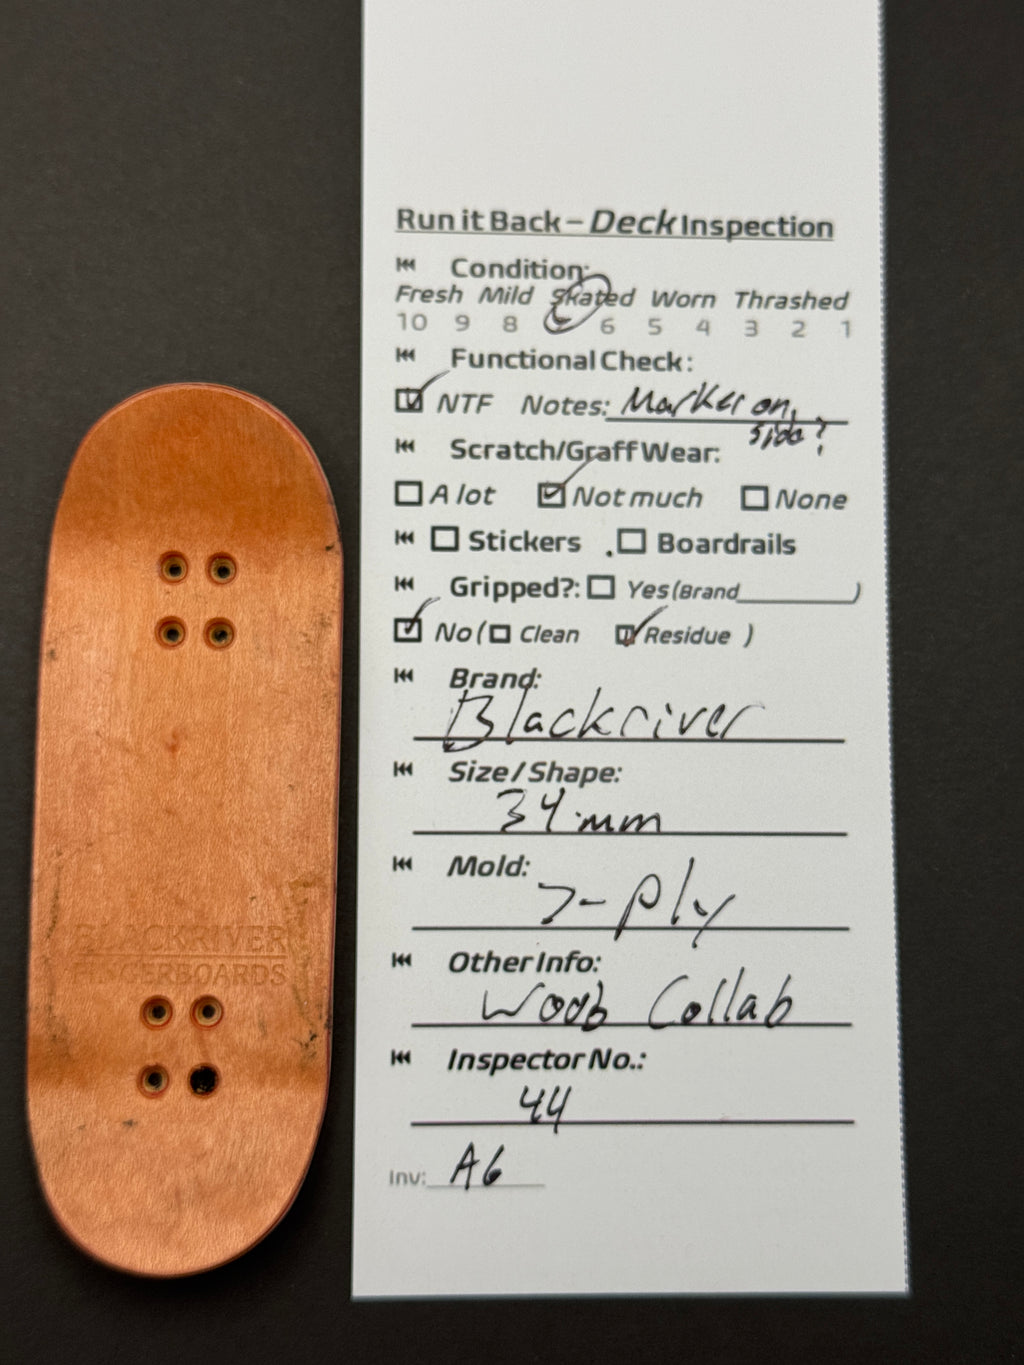 BLACKRIVER
FINGERBOARDS
Run it Back – Deck Inspection
Condition:
Fresh Mild Skated Worn Thrashed
10 9 8 7 6 5 4 3 2 1
Functional Check:
NTF Notes: Marker on
side?
Scratch/Graff Wear:
A lot Not much None
Stickers Boardrails
Gripped?: Yes (Brand )
No ( Clean Residue )
Brand:
Blackriver
Size / Shape:
34 mm
Mold:
7-Ply
Other Info:
Woob Collab
Inspector No.:
44
Inv: A6